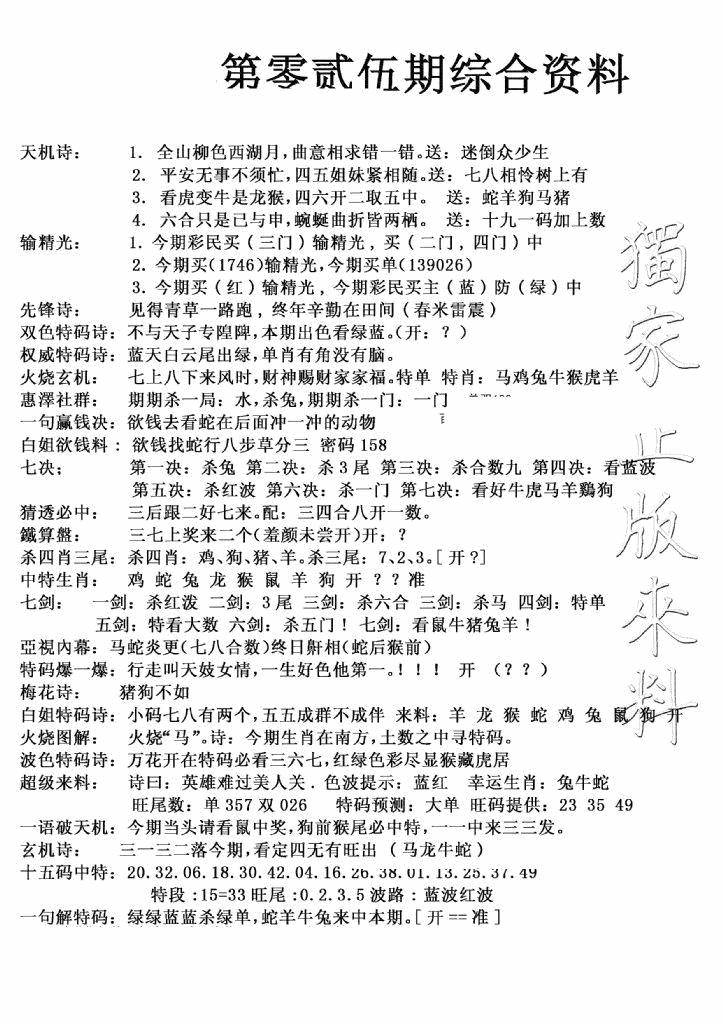 第零贰伍期综合资料
天机诗： 1. 全山柳色西湖月，曲意相求错一错。送：迷倒众少生
2. 平安无事不须忙，四五姐妹紧相随。送：七八相怜树上有
3. 看虎变牛是龙猴，四六开二取五中。 送：蛇羊狗马猪
4. 六合只是已与申，蜿蜒曲折皆两栖。 送：十九一码加上数
输精光： 1. 今期彩民买（三门）输精光，买（二门，四门）中
2. 今期买(1746)输精光，今期买单(139026)
3. 今期买（红）输精光，今期彩民买主（蓝）防（绿）中
先锋诗： 见得青草一路跑，终年辛勤在田间（春米雷震）
双色特码诗：不与天子专隍陴，本期出色看绿蓝。（开：？）
权威特码诗：蓝天白云尾出绿，单肖有角没有脑。
火烧玄机： 七上八下来风时，财神赐财家家福。特单 特肖：马鸡兔牛猴虎羊
惠澤社群： 期期杀一局：水，杀兔，期期杀一门：一门
一句赢钱决：欲钱去看蛇在后面冲一冲的动物
白姐欲钱料：欲钱找蛇行八步草分三 密码 158
七决； 第一决：杀兔 第二决：杀 3 尾 第三决：杀合数九 第四决：看蓝波
第五决：杀红波 第六决：杀一门 第七决：看好牛虎马羊鷄狗
猜透必中： 三后跟二好七来。配：三四合八开一数。
鐵算盤： 三七上奖来二个(羞颜未尝开)开：？
杀四肖三尾：杀四肖：鸡、狗、猪、羊。杀三尾：7、2、3。[ 开 ?]
中特生肖： 鸡 蛇 兔 龙 猴 鼠 羊 狗 开 ？？准
七剑： 一剑：杀红泼 二剑：3 尾 三剑：杀六合 三剑：杀马 四剑：特单
五剑：特看大数 六剑：杀五门！ 七剑：看鼠牛猪兔羊！
亞視內幕：马蛇炎更(七八合数)终日鼾相(蛇后猴前)
特码爆一爆：行走叫天妓女情，一生好色他第一。！！！ 开 （？？）
梅花诗： 猪狗不如
白姐特码诗：小码七八有两个，五五成群不成伴 来料：羊 龙 猴 蛇 鸡 兔 鼠 狗 开
火烧图解： 火烧“马”。诗：今期生肖在南方，土数之中寻特码。
波色特码诗：万花开在特码必看三六七，红绿色彩尽显猴藏虎居
超级来料： 诗曰：英雄难过美人关．色波提示：蓝红 幸运生肖：兔牛蛇
旺尾数：单 357 双 026 特码预测：大单 旺码提供：23 35 49
一语破天机：今期当头请看鼠中奖，狗前猴尾必中特，一一中来三三发。
玄机诗： 三一三二落今期，看定四无有旺出 （马龙牛蛇）
十五码中特：20.32.06.18.30.42.04.16.26.38.01.13.25.37.49
特段：15=33 旺尾：0.2.3.5 波路：蓝波红波
一句解特码：绿绿蓝蓝杀绿单，蛇羊牛兔来中本期。[ 开 == 准 ]
獨家正版來料